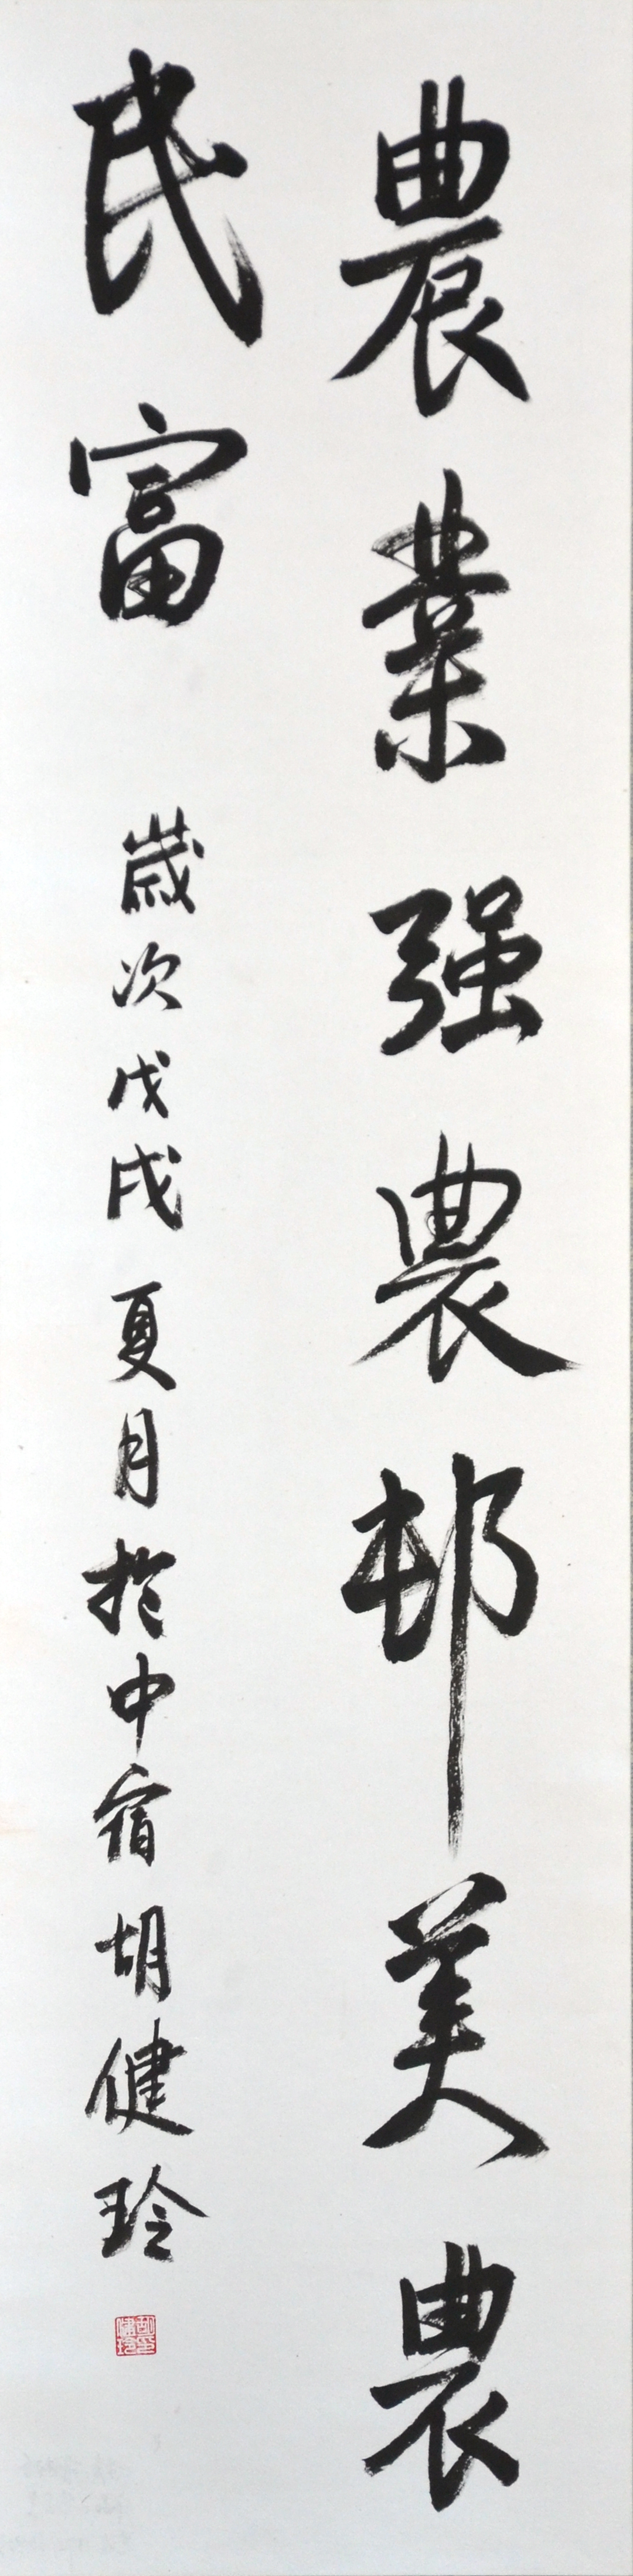 農業强農邨美農
民富
歲次戊戌夏月於中宿胡健玲